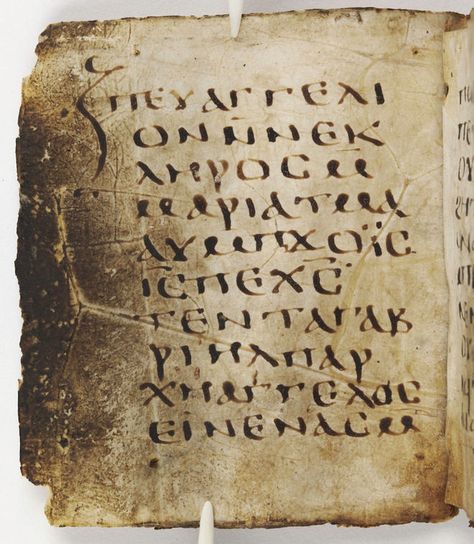 ⲡⲉⲩⲁⲅⲅⲉⲗⲓ
ⲟⲛⲛ̄ⲛⲉⲕ
ⲗⲏⲣⲟⲥⲙ
ⲙⲁⲣⲓⲁⲧⲙⲁ
ⲁⲩⲙⲡϫⲟⲓ̈ⲥ
ⲓ̅ⲥ̅ⲡⲉⲭ̅ⲥ̅
ⲧⲉⲛⲧⲁⲅⲁⲃ
ⲣⲓⲏⲗⲡⲁⲣ
ⲭⲏⲁⲅⲅⲉⲗⲟⲥ
ⲉⲓⲛⲉⲛⲁⲥⲙ